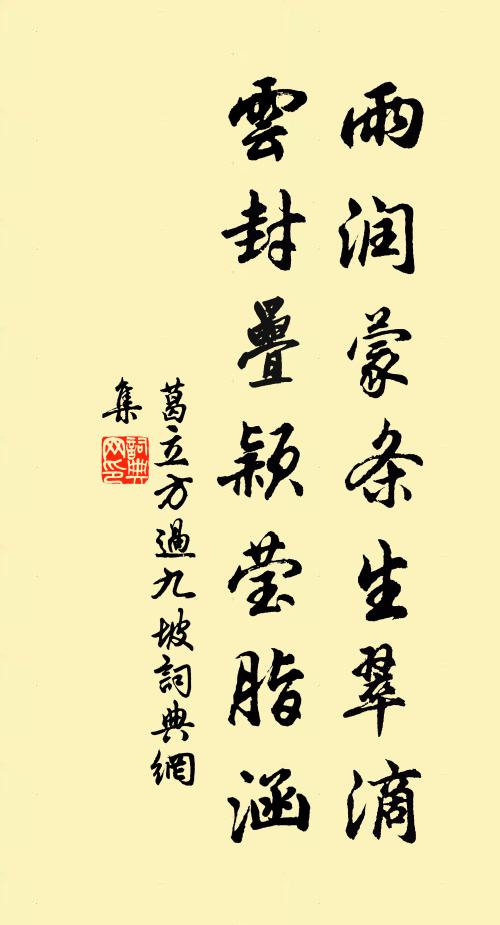 雨润蒙条生翠滴
雲封疊颖莹脂涵
葛立方過九坡詞典網
集
詞典
网印